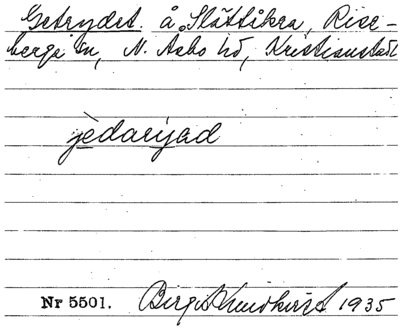 Getrydet. å Slättåkra, Rise-
berga sn, N. Åsbo hd, Kristianstads
jèdarÿad
Nr 5501. Birgit Lindkvist 1935